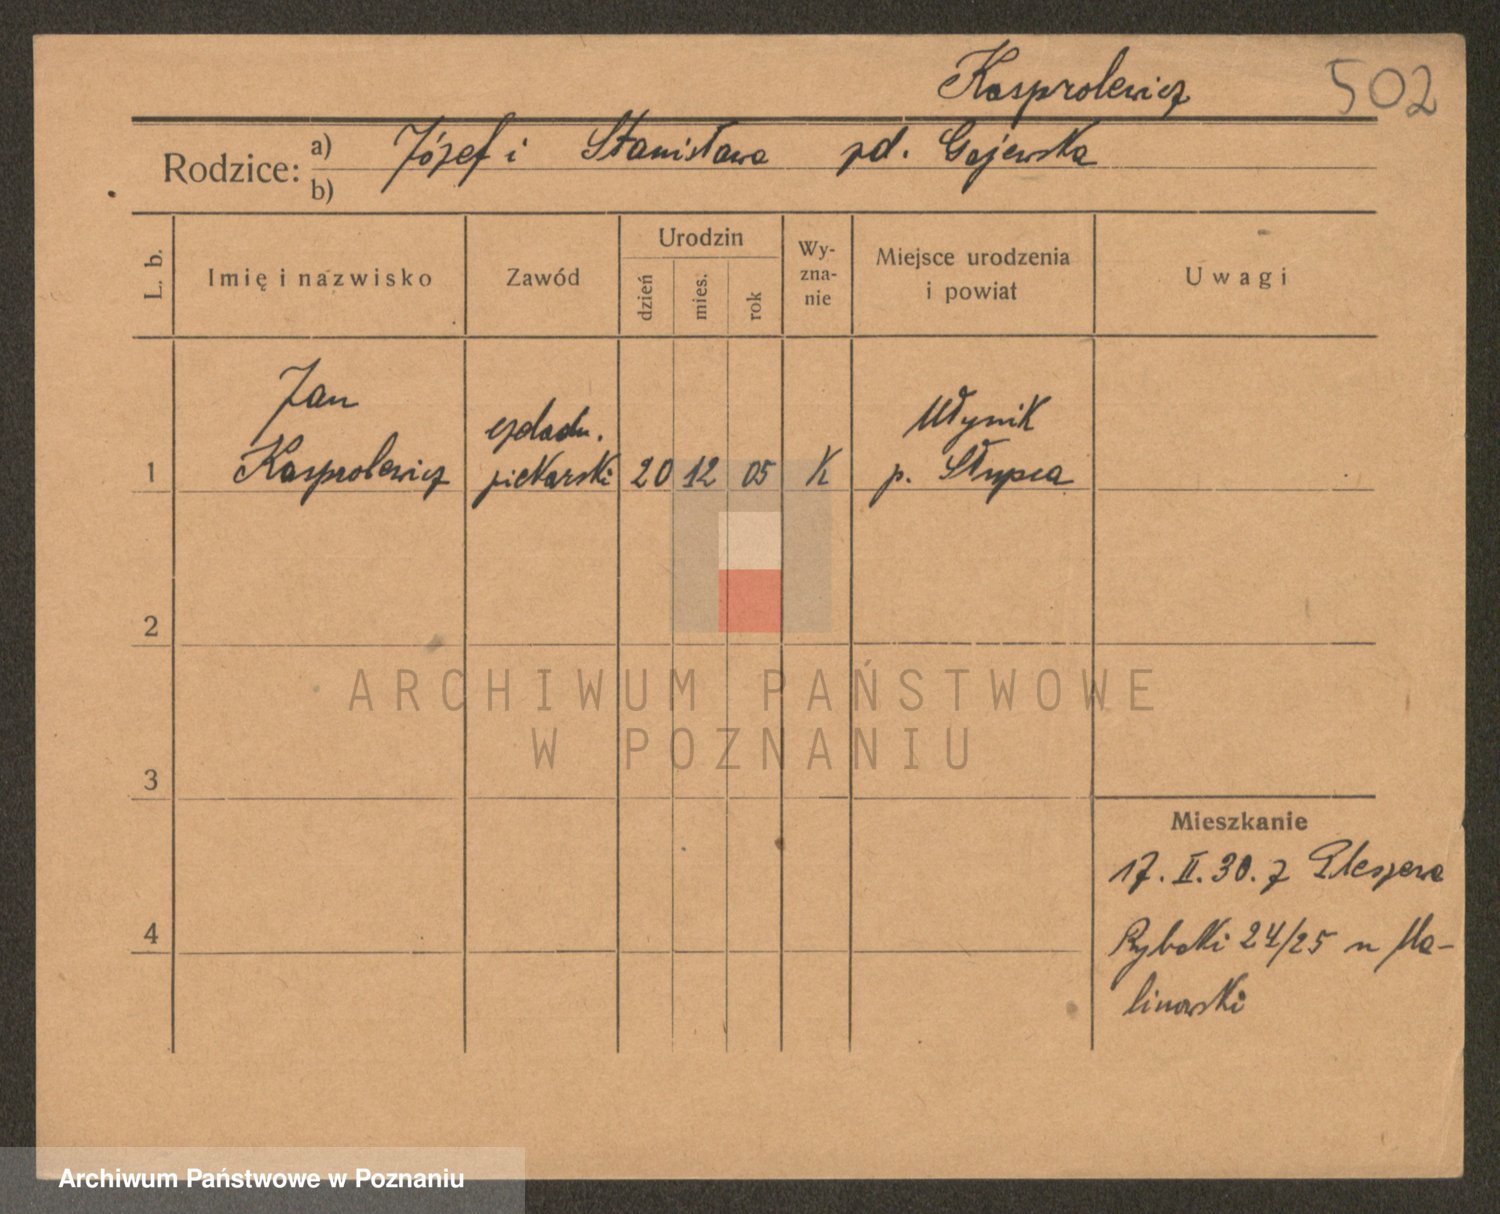 Kasprolewicz 502
Rodzice: a) Józef i Stanisława zd. Gajewska
b)
L. b. Imię i nazwisko Zawód Urodzin dzień mies. rok Wy-zna-nie Miejsce urodzenia i powiat Uwagi
Jan czeladn. Młynik
1 Kasprolewicz piekarski 20 12 05 K p. Słupca
2
ARCHIWUM PAŃSTWOWE
W POZNANIU
3
Mieszkanie
17. II. 30. z Pleszewa
4 Rybaki 24/25 u Ma-
linowski
Archiwum Państwowe w Poznaniu